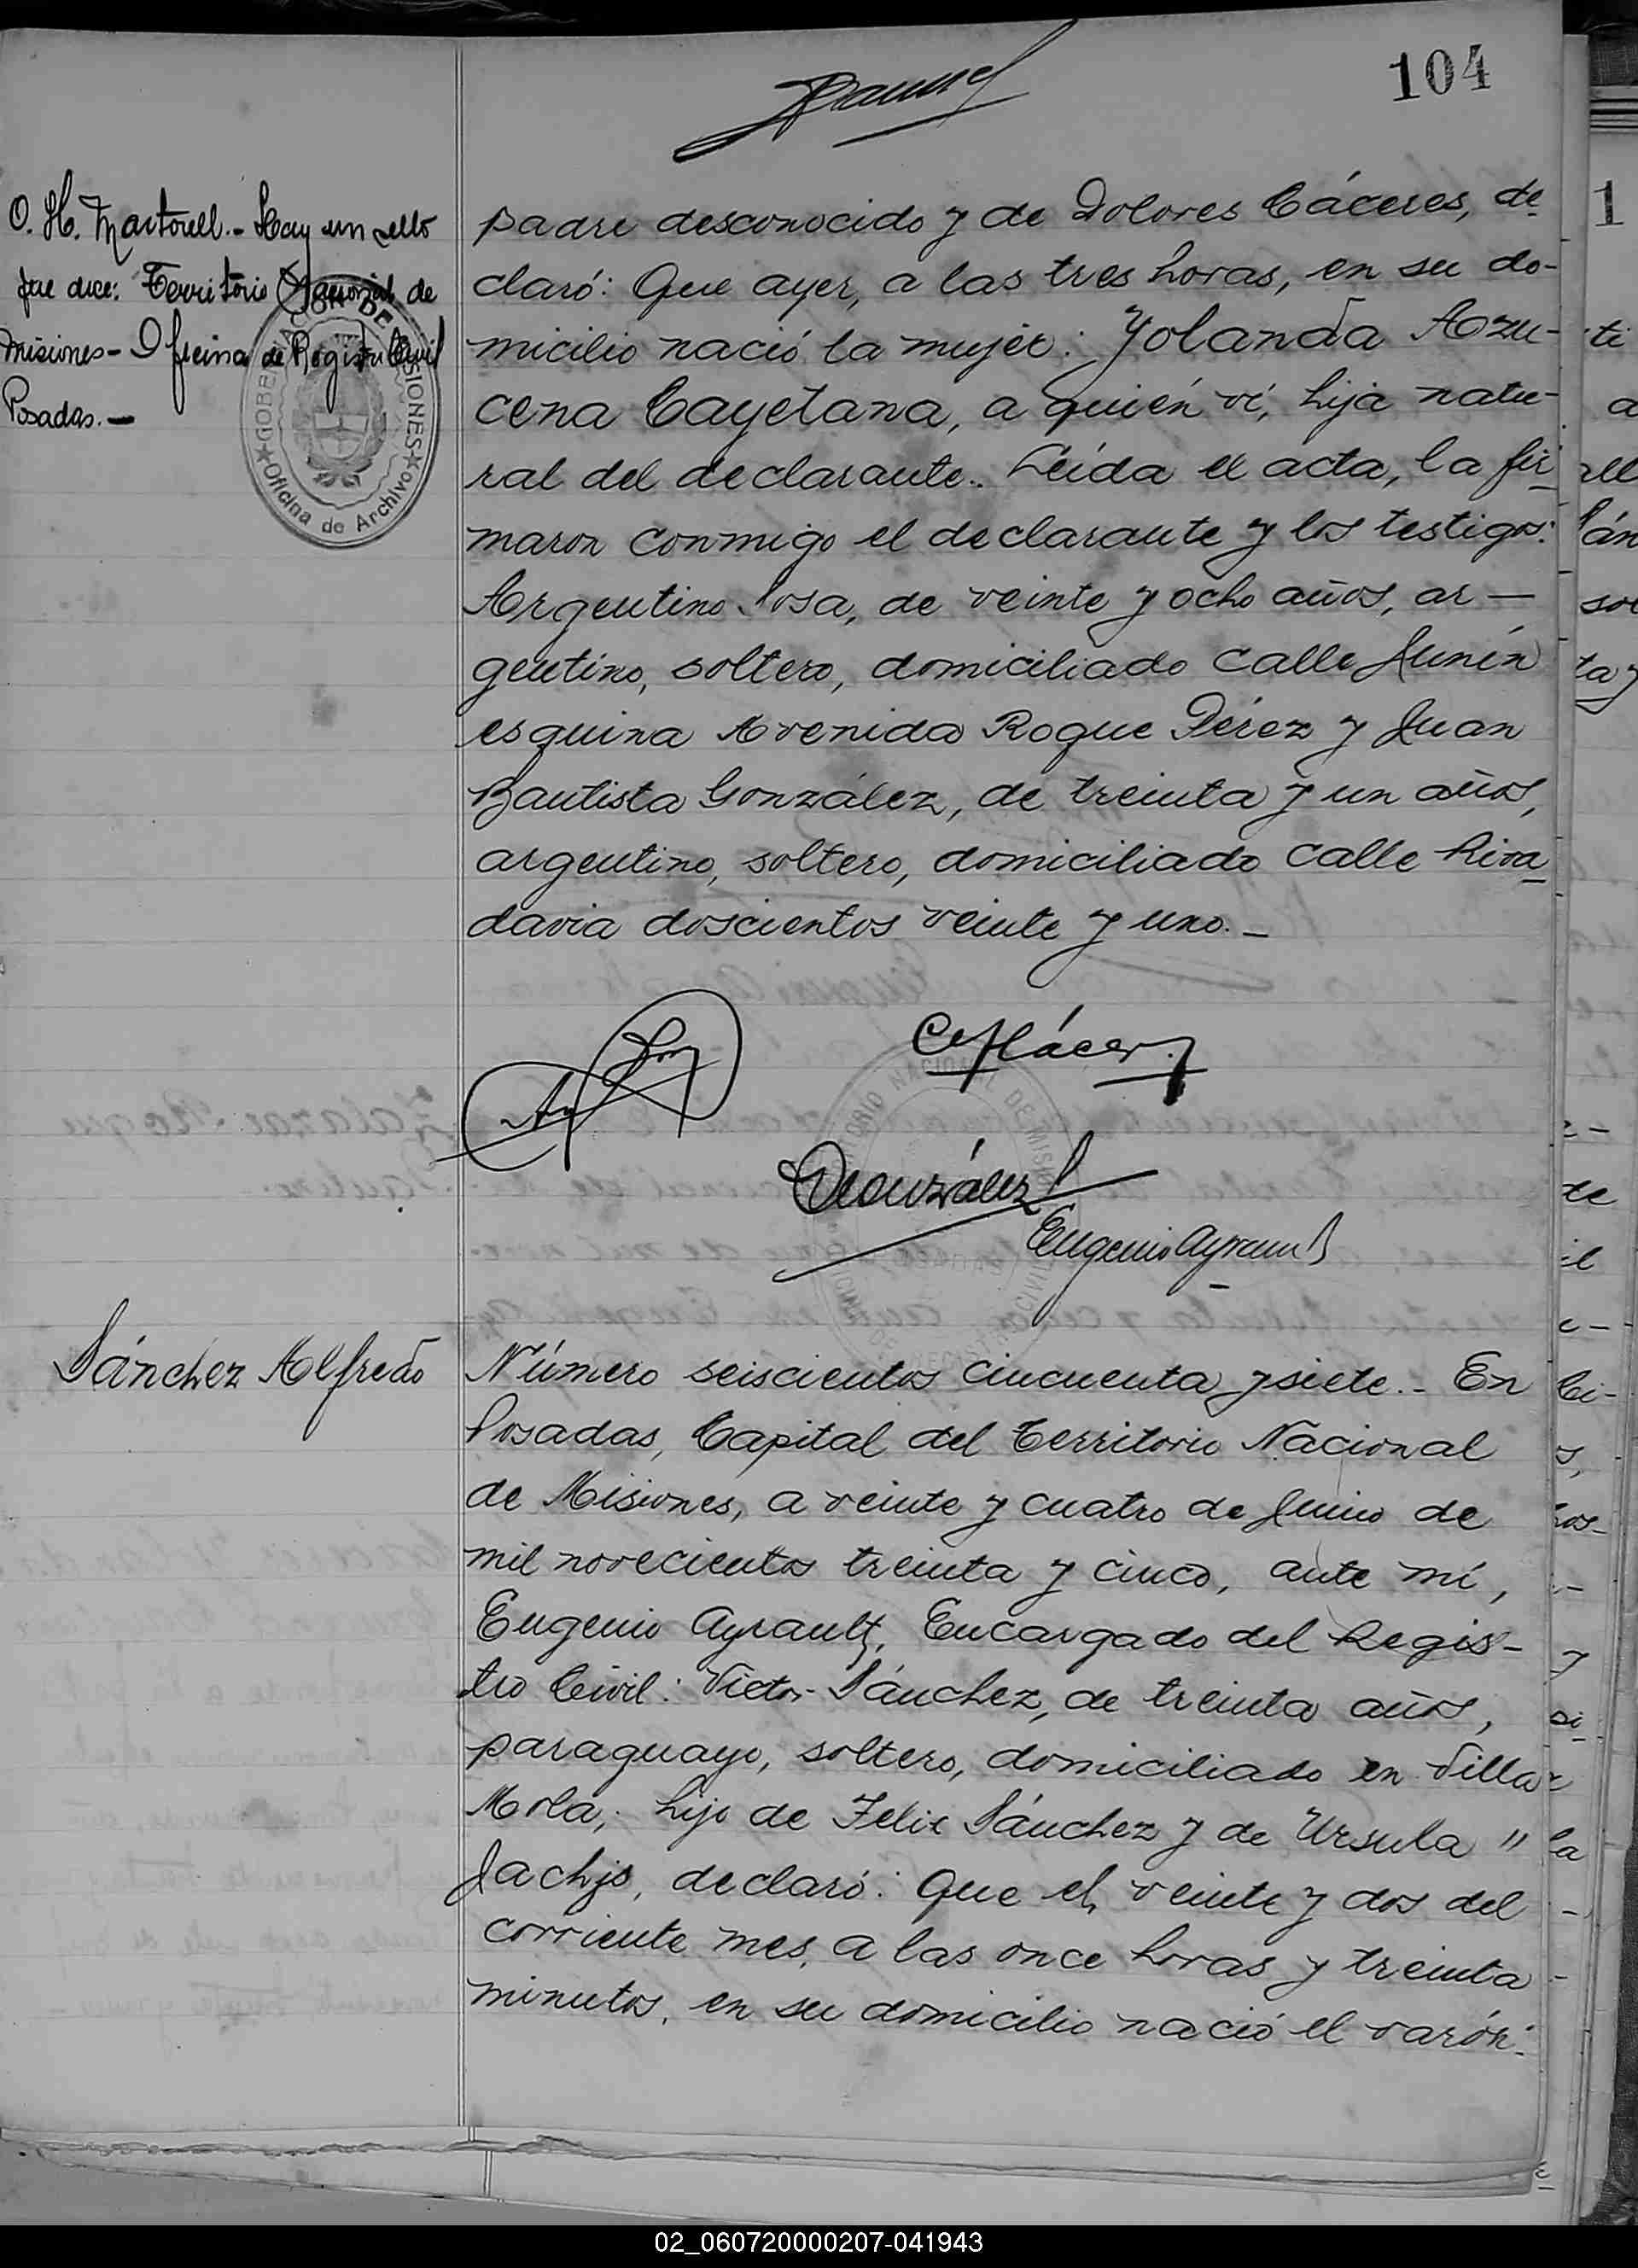 104
O. H. Martorell.- Hay un sello
que dice: Territorio Nacional de
Misiones - Oficina de Registro Civil
Posadas.-
GOBERNACION DE MISIONES
Oficina de Archivo
padre desconocido y de Dolores Cáceres, de-
claró: Que ayer, a las tres horas, en su do-
micilio nació la mujer: Yolanda Azu-
cena Cayetana, a quién ví, hija natu-
ral del declarante.. Leída el acta, la fir-
maron conmigo el declarante y los testigos:
Argentino Sosa, de veinte y ocho años, ar-
gentino, soltero, domiciliado calle Junín
esquina Avenida Roque Pérez y Juan
Bautista González, de treinta y un años,
argentino, soltero, domiciliado calle Riva-
davia doscientos veinte y uno.-
González
Eugenio Ayrault
Sánchez Alfredo
Número seiscientos cincuenta y siete.- En
Posadas, Capital del Territorio Nacional
de Misiones, a veinte y cuatro de Junio de
mil novecientos treinta y cinco, ante mí,
Eugenio Ayrault, Encargado del Regis-
tro Civil: Victor Sánchez, de treinta años,
paraguayo, soltero, domiciliado en Villa
Mola; hijo de Felix Sánchez y de Ursula "
declaró: Que el veinte y dos del
corriente mes, a las once horas y treinta
minutos, en su domicilio nació el varón:
02_060720000207-041943